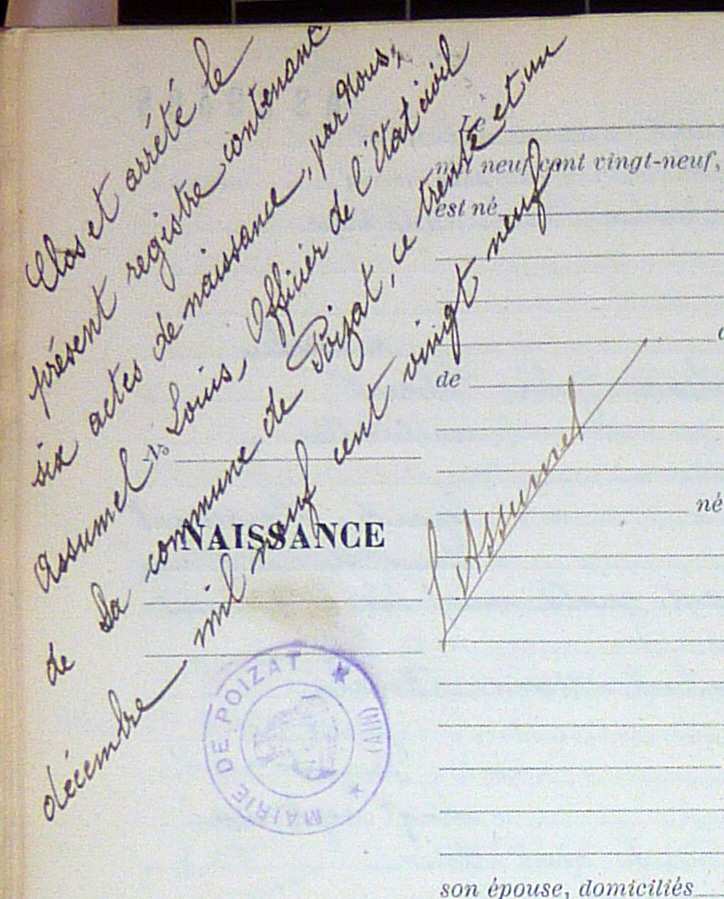 Clos et arrêté le
présent registre contenant
six actes de naissance, par Nous,
Assumel Louis, Officier de l'Etat civil
de la commune de Poizat, ce trente et un
décembre mil neuf cent vingt neuf
L. Assumel
NAISSANCE
MAIRIE DE POIZAT (AIN)
Le
mil neuf cent vingt-neuf,
est né
de
né
son épouse, domiciliés